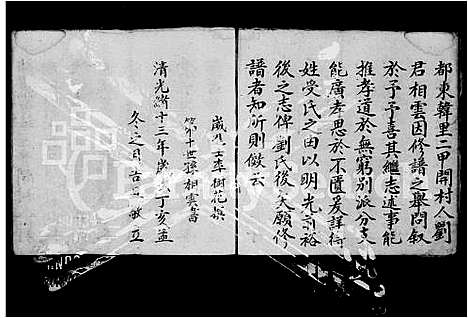 都東韓里二甲開村人劉
君相雲因修譜之舉問叙
於予予喜其繼志述事能
推孝道於無窮別派分支
能廣孝思於不匱爰詳得
姓受氏之由以明光前裕
後之志俾劉氏後人願修
譜者知所則倣云
歲八十五率樹花氏
第十世孫相雲書
清光緒十三年歲次丁亥孟
冬之月吉旦敬立